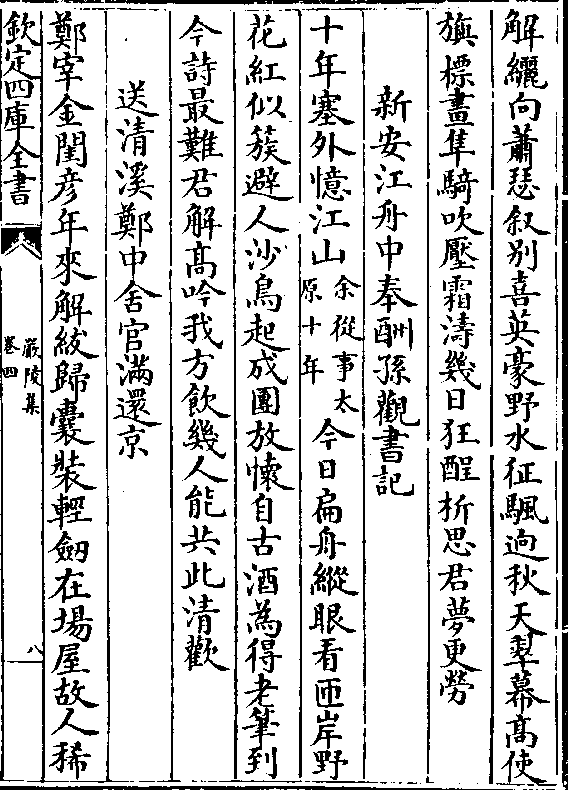 解纚向蕭瑟叙别喜英豪野水征颿逈秋天翠幕髙使
旟標畫隼騎吹壓霜濤幾日狂酲析思君夢更勞
新安江舟中奉酬孫觀書記
十年塞外憶江山余從事太原十年今日扁舟縱眼看匝岸野
花紅似簇避人沙鳥起成團放懷自古酒為得老筆到
今詩最難君解髙吟我方飲幾人能共此清歡
送清溪鄭中舍官滿還京
鄭宰金閨彦年來解紱歸囊裝輕劒在場屋故人稀
欽定四庫全書
嚴陵集
卷四
八